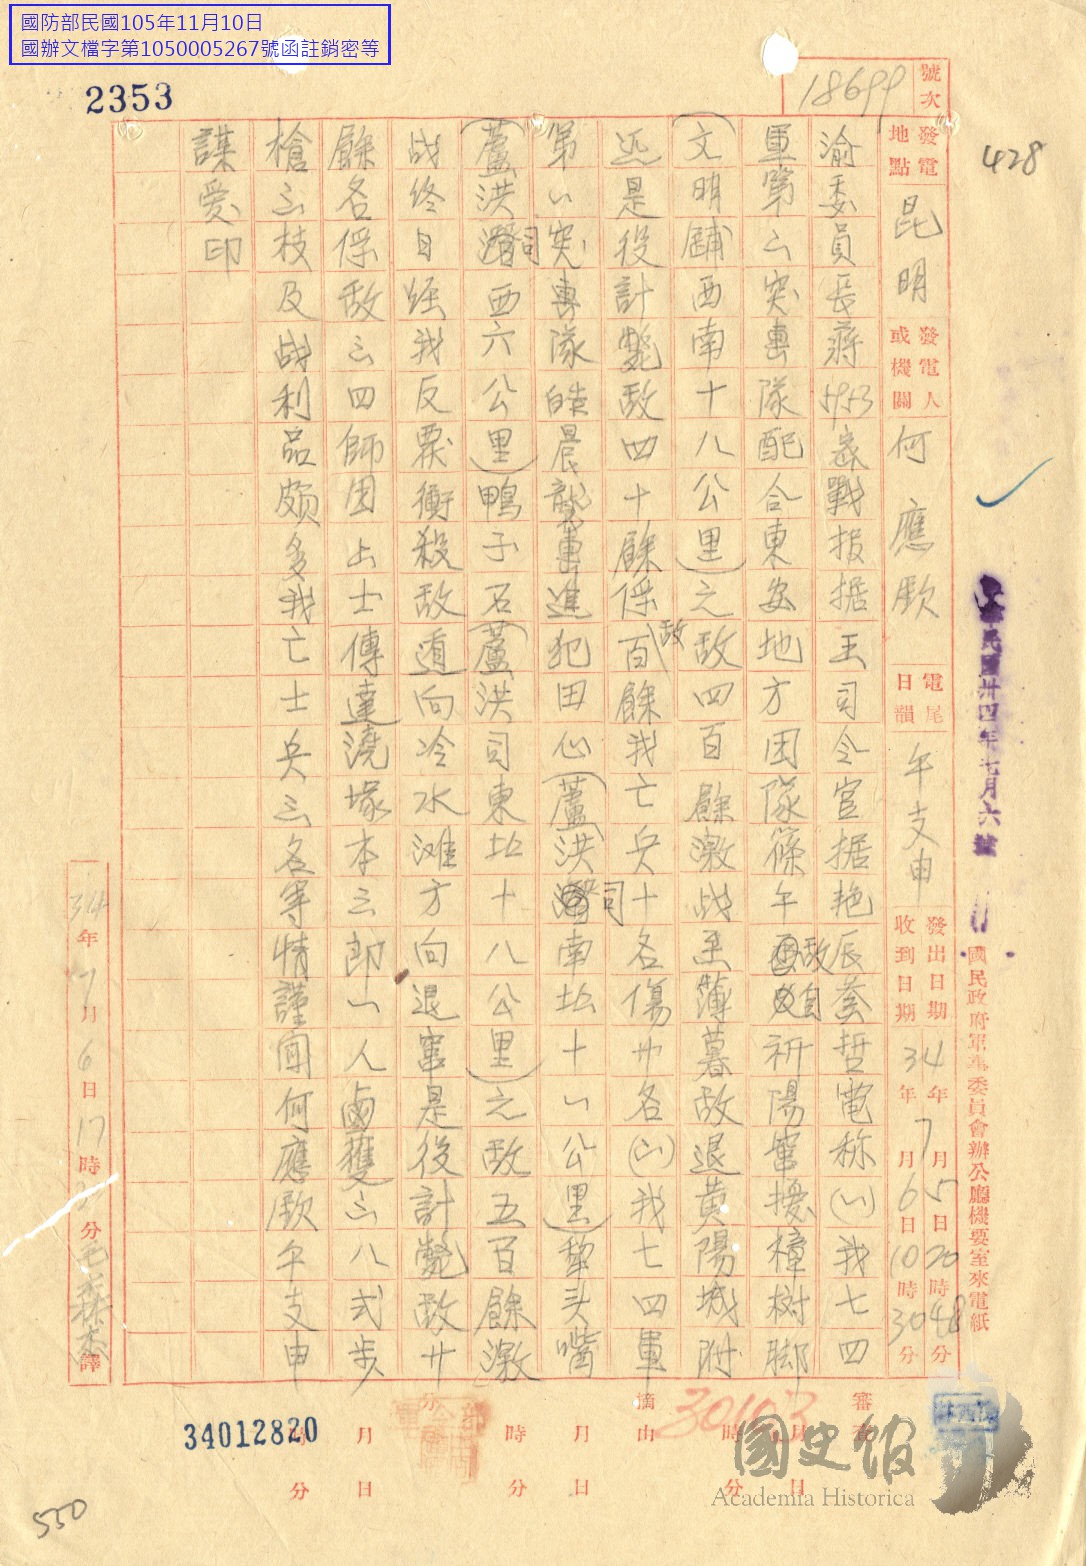 國防部民國105年11月10日
國辦文檔字第1050005267號函註銷密等
2353
號次
18699
428
發電地點
昆明
發電人或機關
何應欽
電尾日韻
午支申
發出日期
34年7月5日20時48分
收到日期
6日10時30分
渝委員長蔣5953密戰报据王司令官据艳辰蓥哲電称(1)我七四
軍第二突擊隊配合東安地方团隊篠午敌自祈陽窜擾樟树脚
(文明鋪西南十八公里)之敌四百餘激战至薄暮敌退黄陽城附
近是役計毙敌四十餘俘敌百餘我亡兵十名傷卅各(二)我七四軍
第一突擊隊皓晨襲擊進犯田心(蘆洪司南北十一公里)犂头嘴
(蘆洪司西六公里)鴨子石(蘆洪司東北十八公里)之敌五百餘激
战终日经我反覆衝殺敌遁向冷水滩方向退窜是役計毙敌廿
餘名俘敌三四師团上士傳達澆塚本三郎一人鹵獲三八式步
槍三枝及战利品颇多我亡士兵三名等情謹闻何應欽午支申
謀爱印
中華民國卅四年七月六
國民政府軍事委員會辦公廳機要室來電紙
34年7月6日17時分
譯
審查
月日
時分
摘由
30103
月日
時分
月日
時分
34012820
550
國史館
Academia Historica